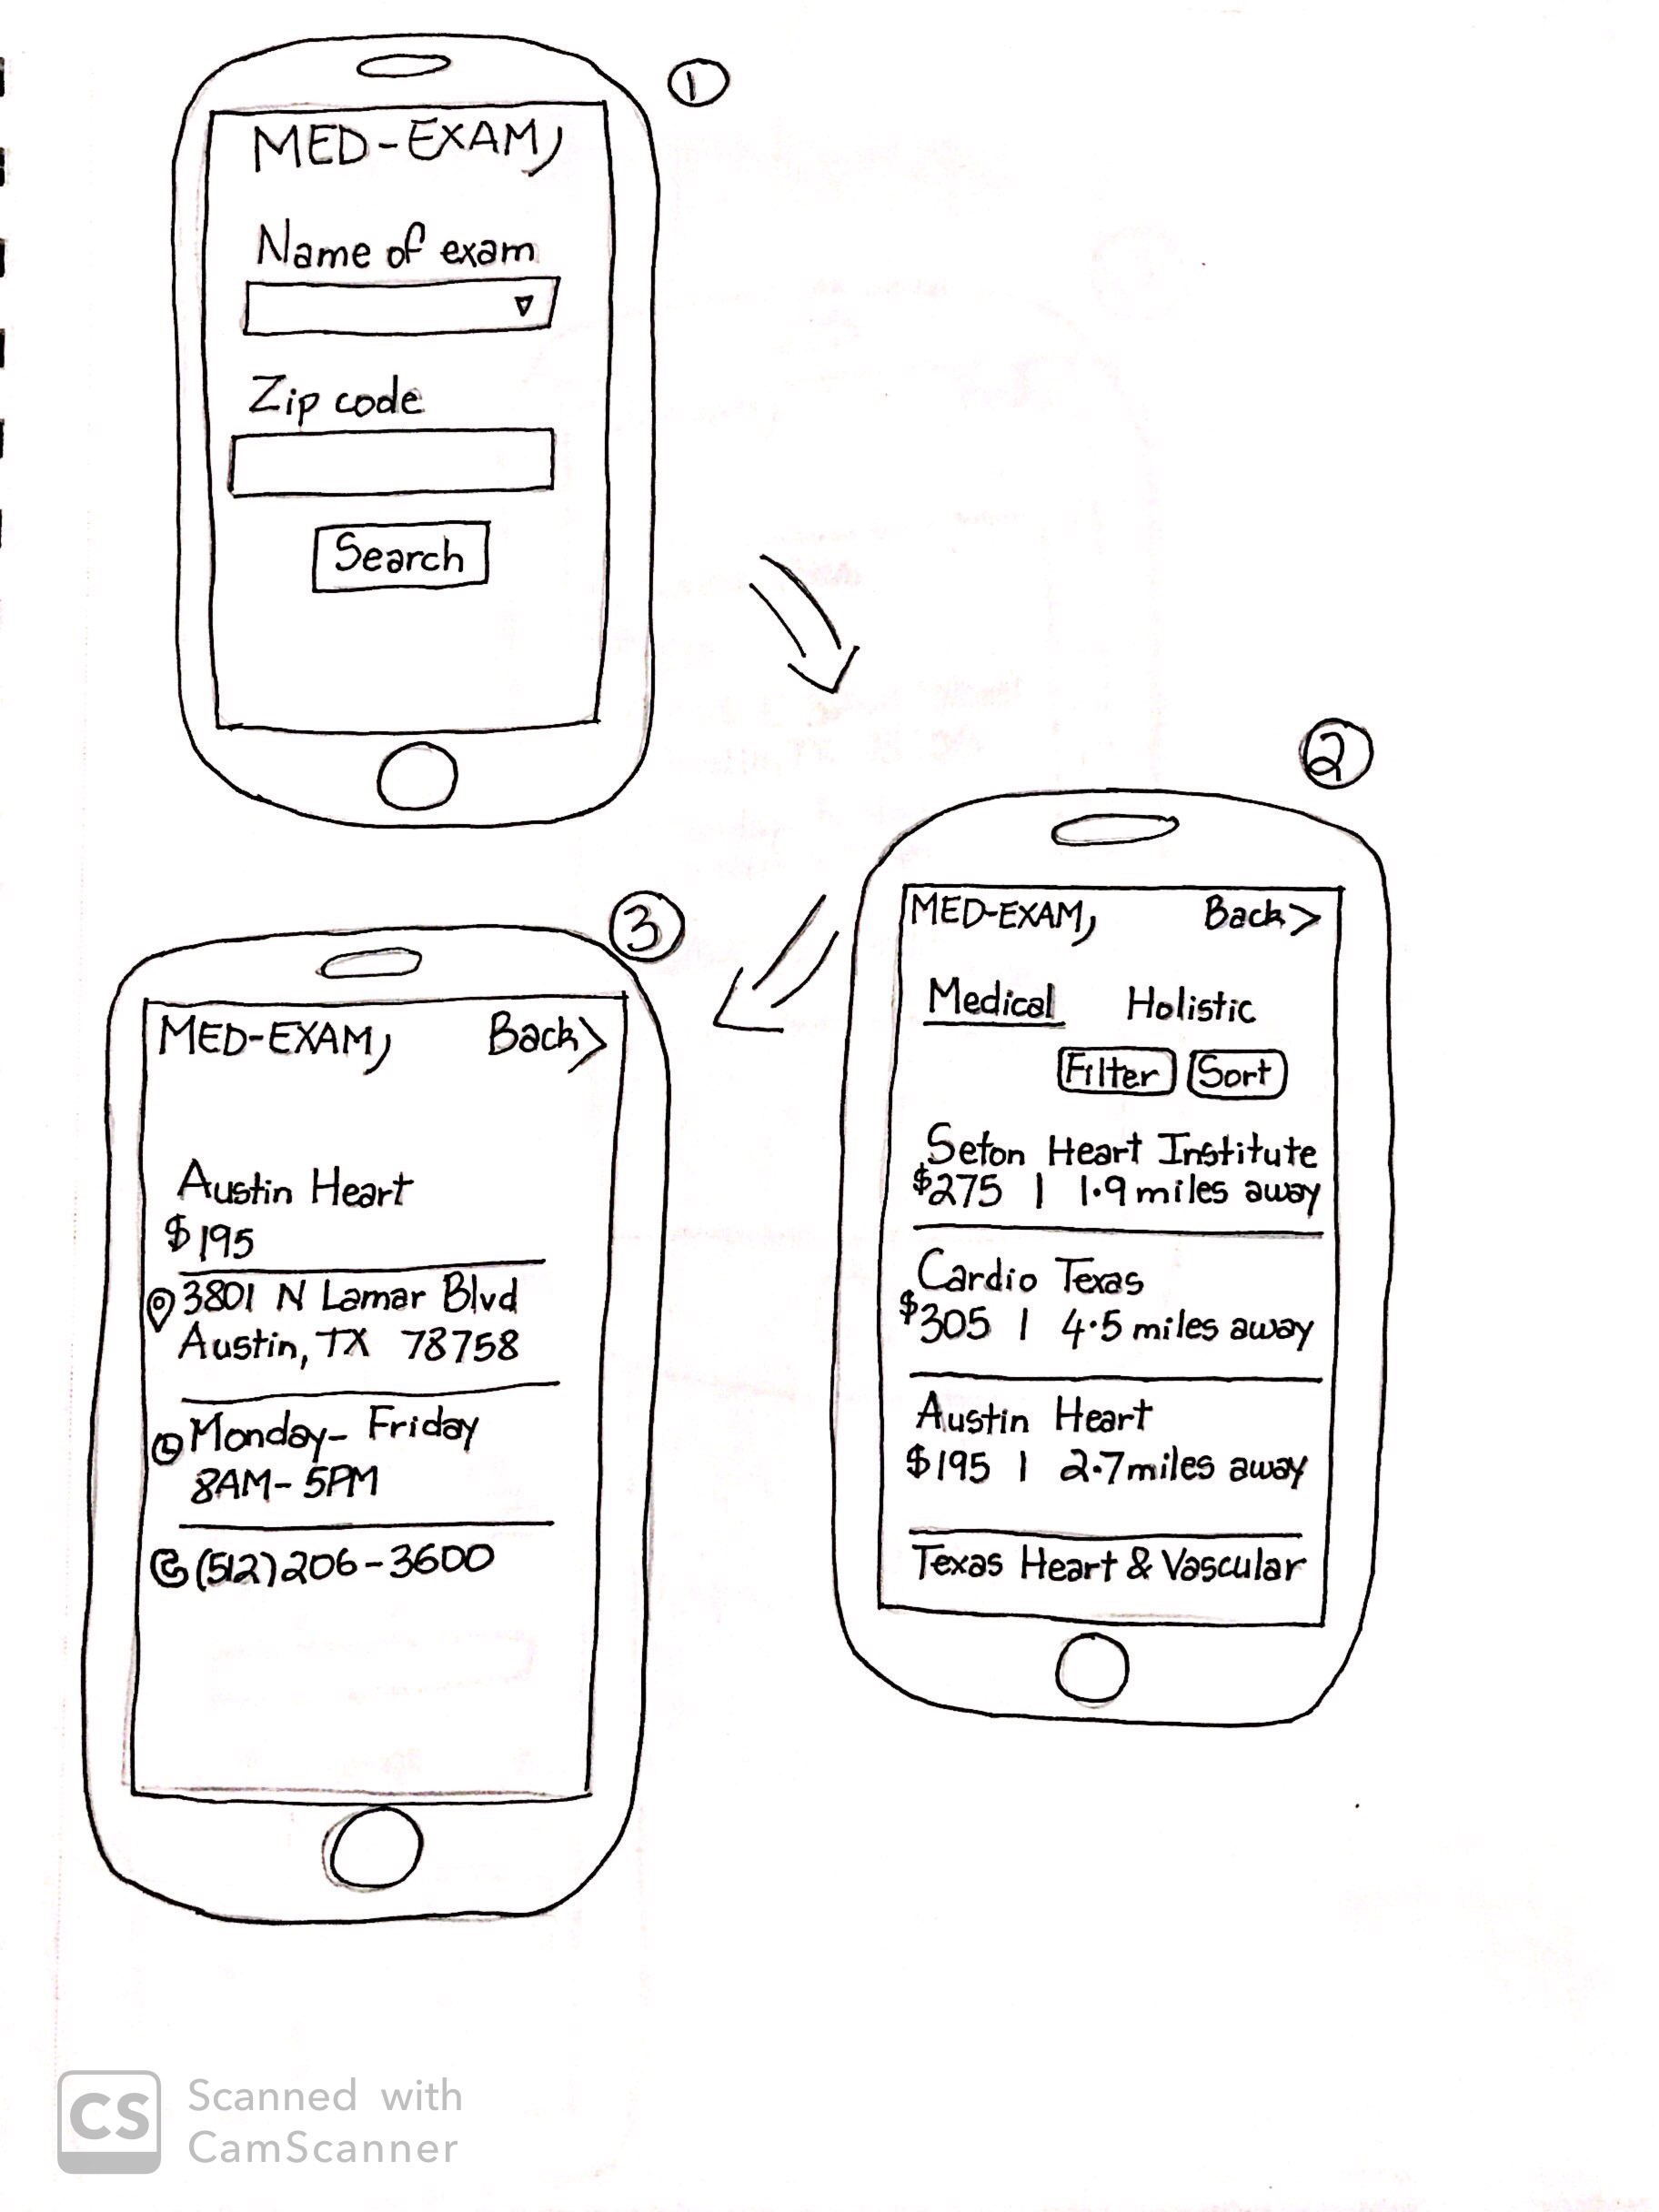 1
MED-EXAM,
Name of exam
Zip code
Search
2
MED-EXAM, Back>
Medical Holistic
Filter Sort
Seton Heart Institute
$275 | 1.9 miles away
Cardio Texas
$305 | 4.5 miles away
Austin Heart
$195 | 2.7 miles away
Texas Heart & Vascular
3
MED-EXAM, Back>
Austin Heart
$195
3801 N Lamar Blvd
Austin, TX 78758
Monday- Friday
8AM- 5PM
(512)206-3600
CS
Scanned with
CamScanner